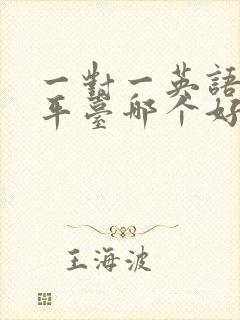 一對一英語
平臺哪个好
王海波